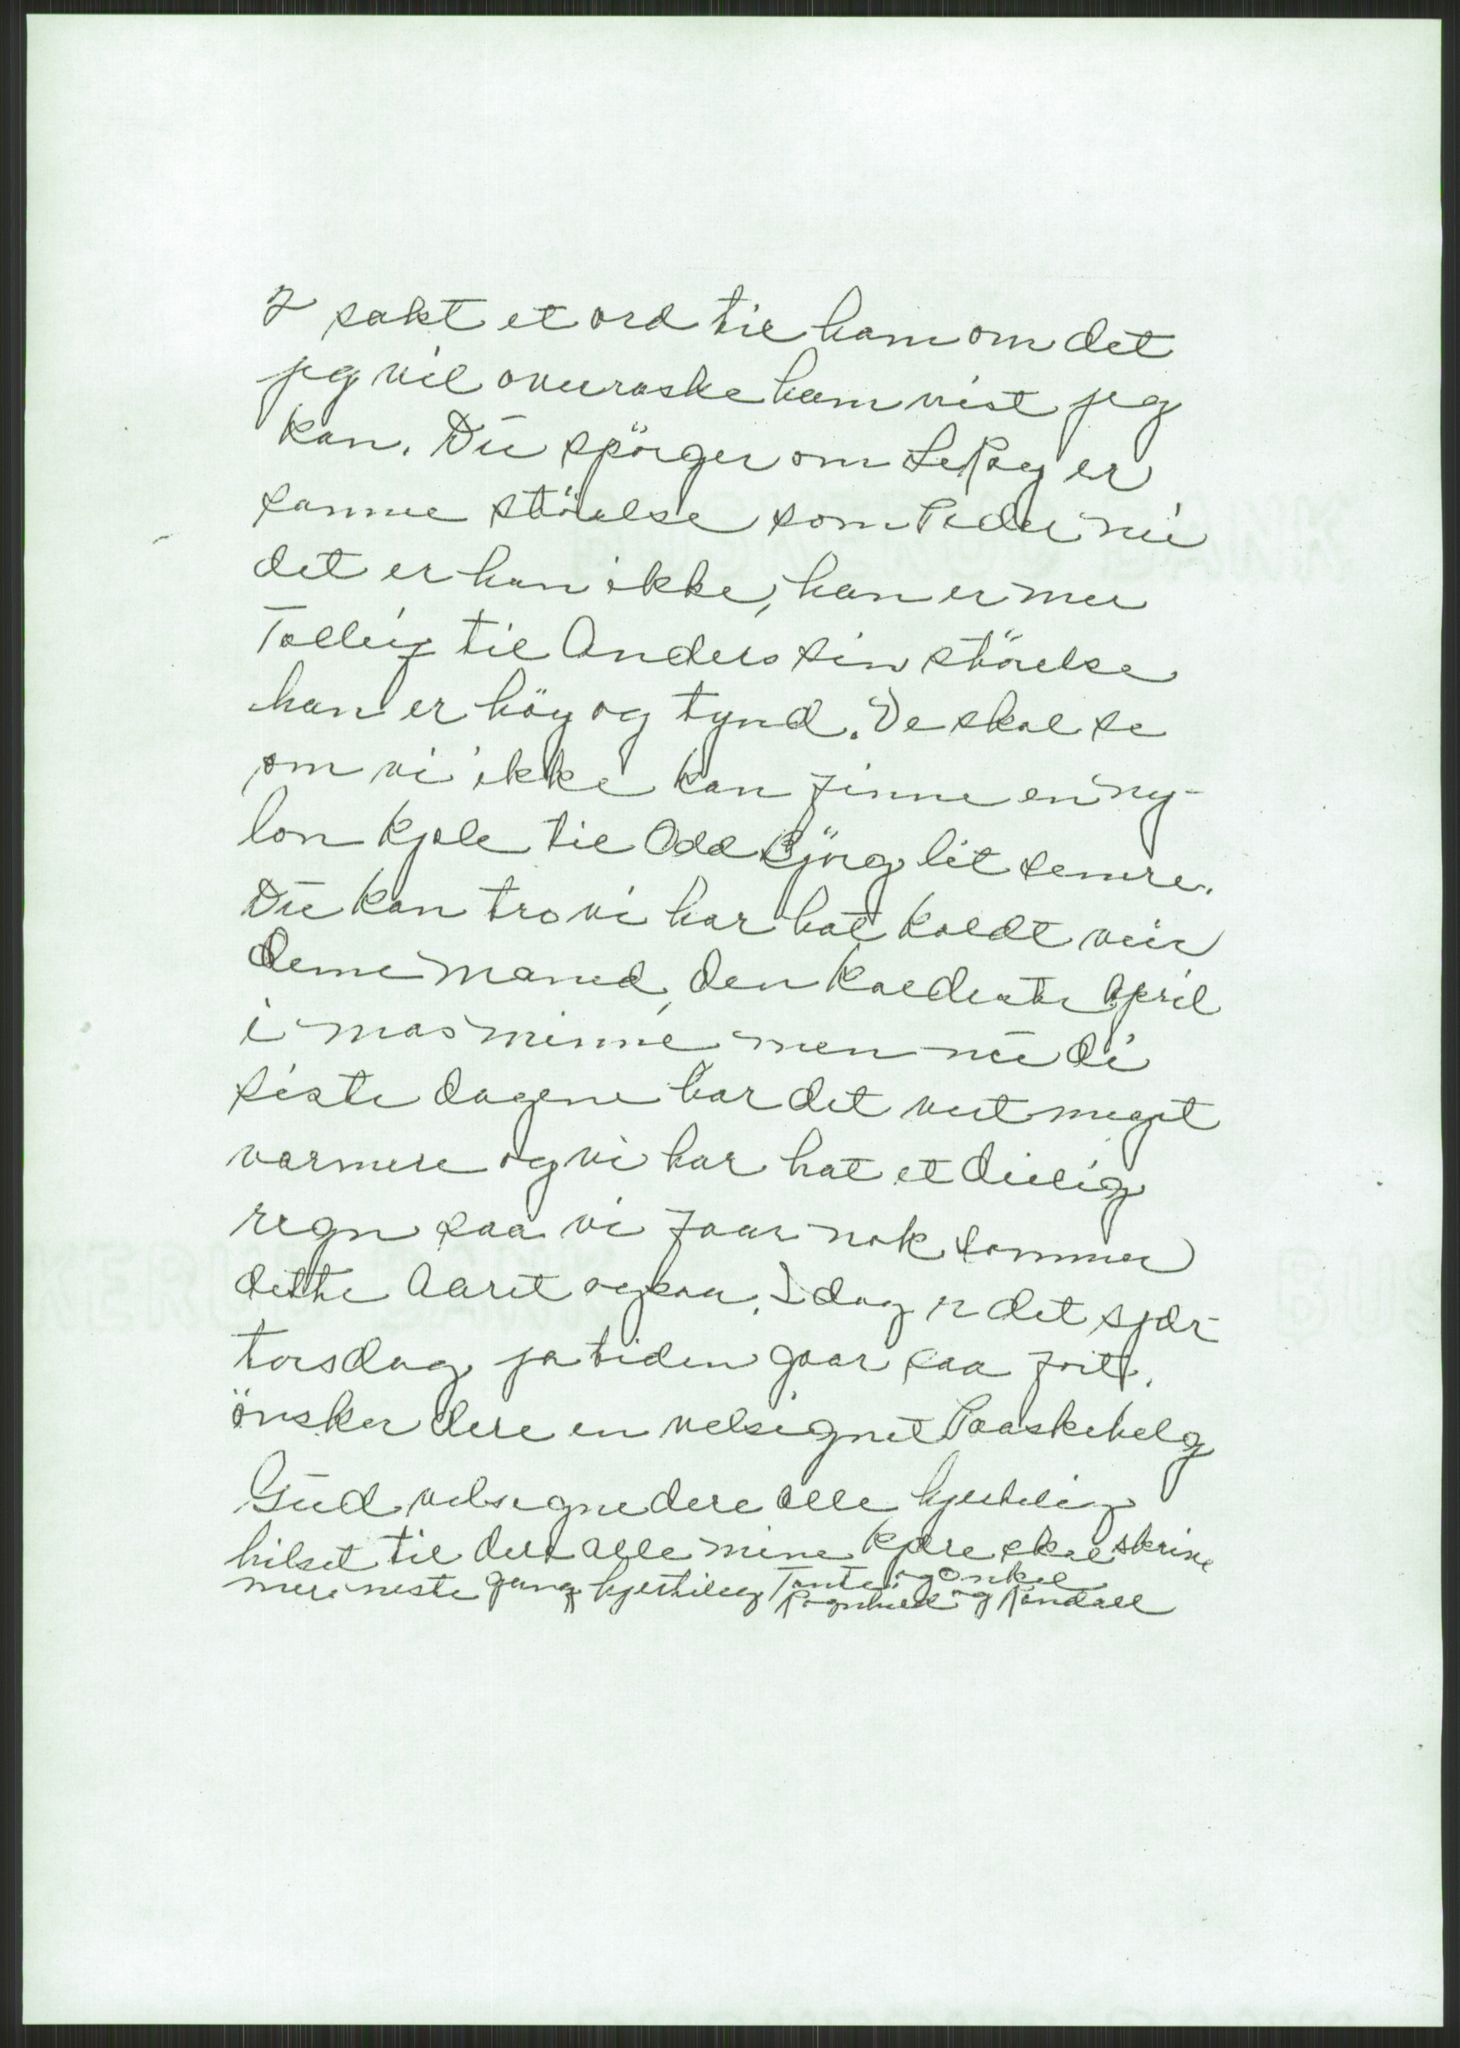 7 sakt et ord til ham om det
jeg vil overraske ham vist jeg
kan. Du spörger om LeRoy er
samme störelse som Peder nu
det er han ikke, han er mer
til Anders sin störelse
han er höy og tynd. Ve skal se
om vi ikke kan finne en ny-
lon kjole til Odd Björg lit senere.
Du kan tro vi har hat koldt veir
denne maned, den koldeste April
i mas minne men nu di
siste dagene har det vert meget
varmere og vi har hat et deilig
regn saa vi faar nok sommer
dette Aaret ogsaa. I dag er det sjær-
torsdag ja tiden gaar saa fort.
önsker dere en velsignet Paaskehelg
Gud velsigne dere alle hjertelig
hilset til dere alle mine kjære skal skrive
mere neste gang hjertelig Tante og Onkel
Ragnhild og Randall